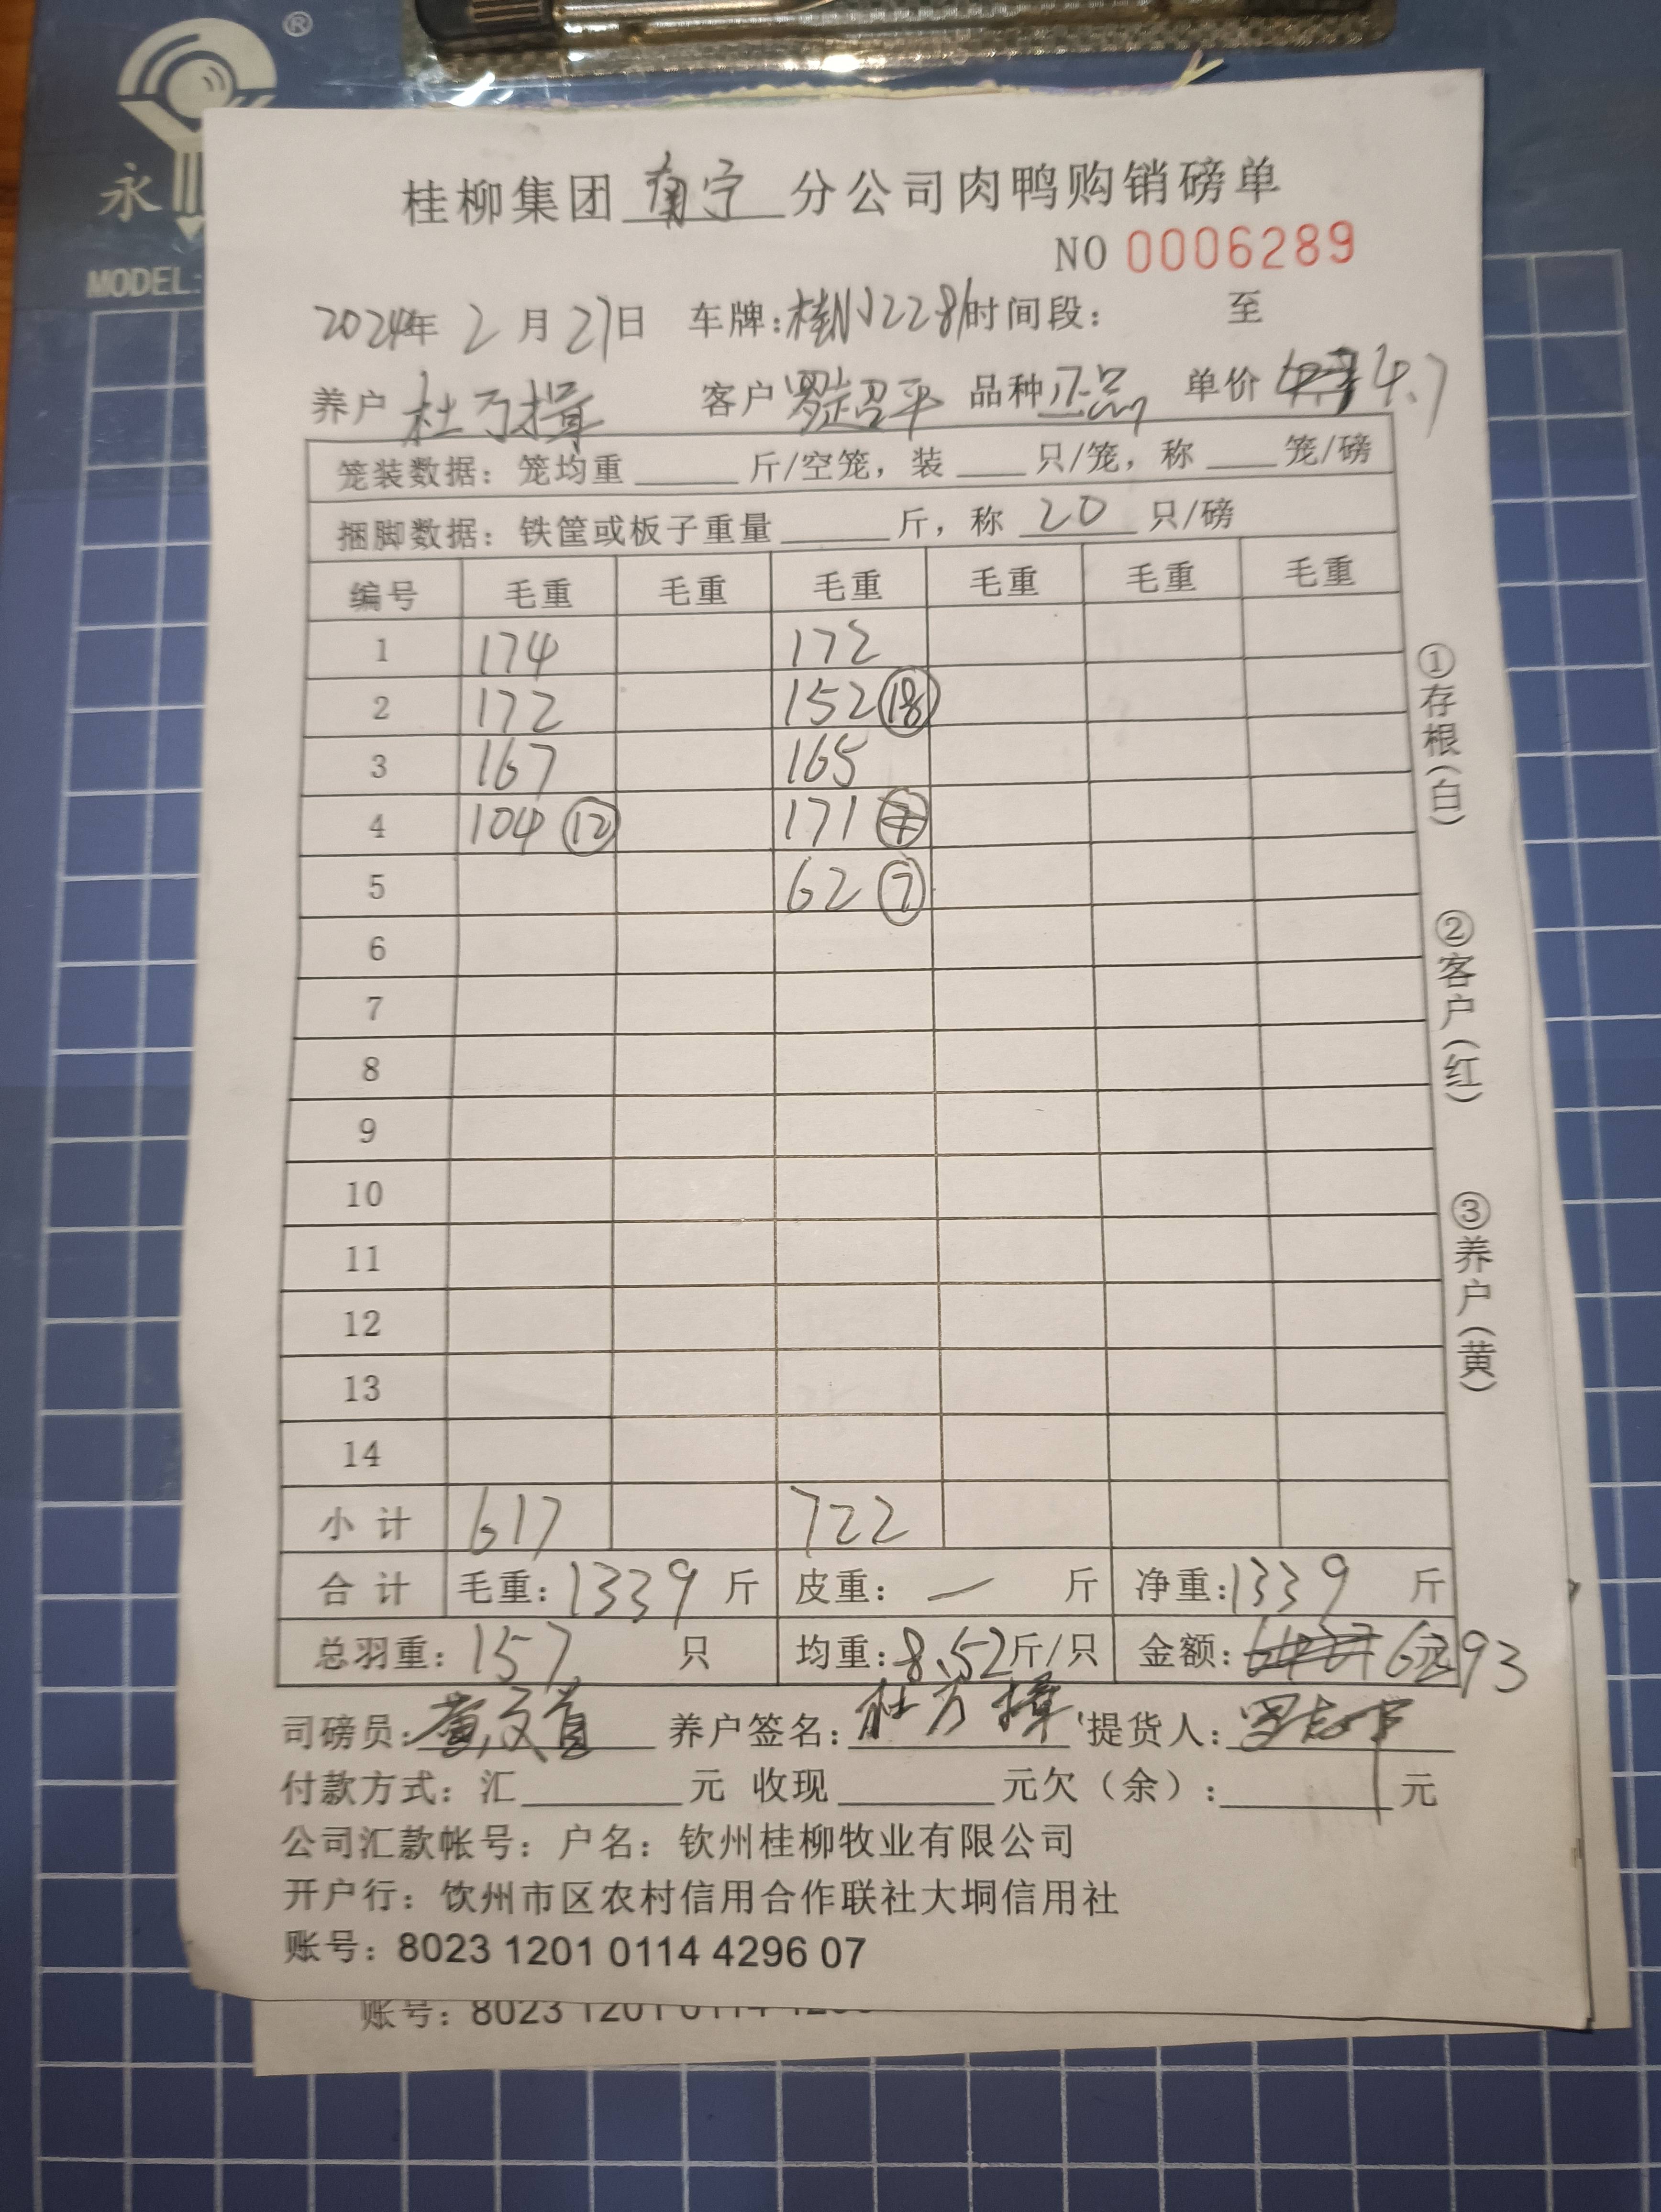 ®
永
MODEL:
桂柳集团 南宁 分公司肉鸭购销磅单
NO 0006289
2024年 2 月 21日 车牌: 时间段: 至
养户 杜 客户 罗超平 品种 正品 单价 4.7
笼装数据: 笼均重 斤/空笼, 装 只/笼, 称 笼/磅
捆脚数据: 铁筐或板子重量 斤, 称 20 只/磅
编号 毛重 毛重 毛重 毛重 毛重 毛重
1 174 172
2 172 152 ⑱
3 167 165
4 104 ⑫ 171
5 62 ⑦
6
7
8
9
10
11
12
13
14
小 计 617 722
合 计 毛重: 1339 斤 皮重: — 斤 净重: 1339 斤
总羽重: 157 只 均重: 8.52 斤/只 金额: 6293 元
司磅员: 养户签名: 杜 提货人: 罗
付款方式: 汇 元 收现 元欠（余）: 元
公司汇款帐号: 户名: 钦州桂柳牧业有限公司
开户行: 饮州市区农村信用合作联社大垌信用社
账号: 8023 1201 0114 4296 07
账号: 8023 1201 0114
①存根(白)
②客户(红)
③养户(黄)